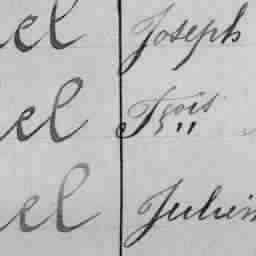 el Joseph
el Fçois "
el Julien